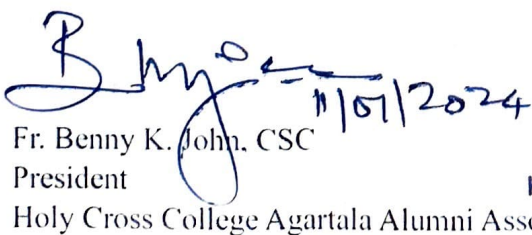 11/01/2024
Fr. Benny K. John, CSC
President
Holy Cross College Agartala Alumni Asso